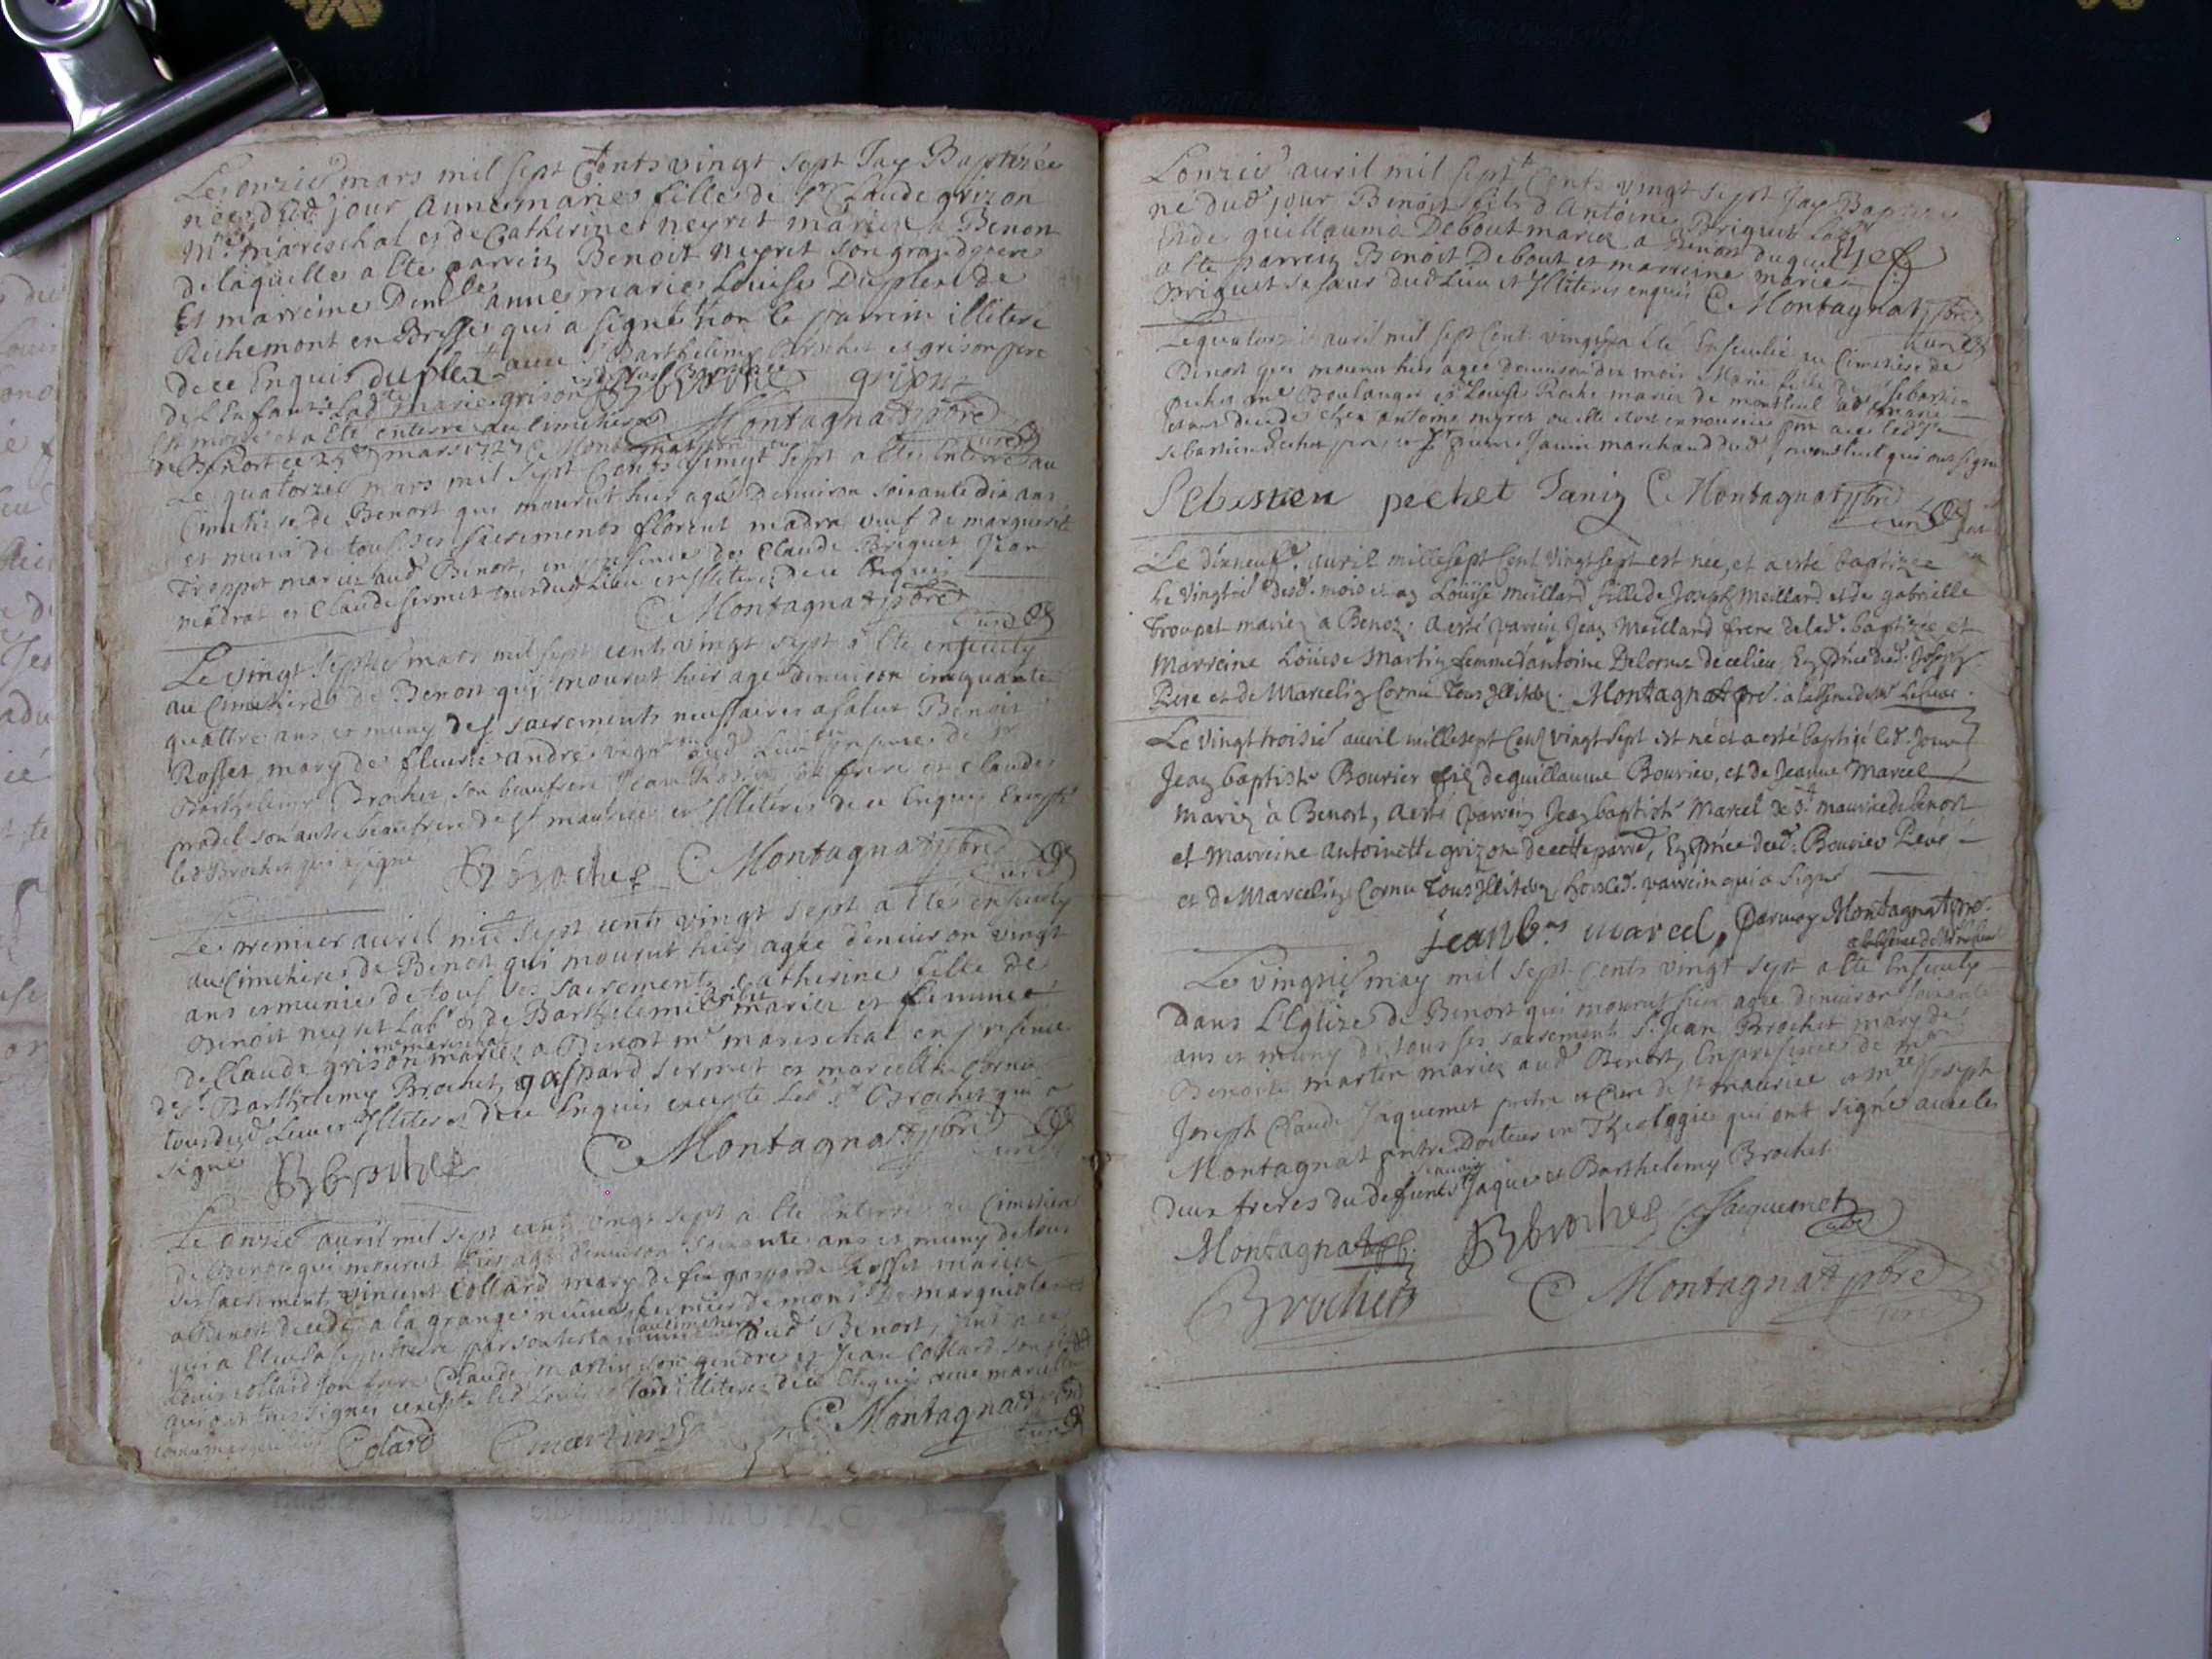 Le onzie mars mil sept Cents vingt sept Jay Baptizée
née dud jour annemarie fille de Sr Claude grizon
Me mareschal et de Catherine neyret mariez a Benon
de laquelle a ete parrein Benoit neyret son grand pere
Et marreine Demlle annemarie Louise Duplex de
Richemont en Bresse qui a signé non le parrein illiteré
de ce Enquis duplex avec Sr Barthelemy Brochet et grison pere
de lEnfant Lade marie grison B brochet grison
est morte et a ete enterré au cimetiere Montagnat pbre
de Benost ce 25e mars 1727 Montagnat pbre curé
Le quatorze mars mil sept Cents vingt sept a ete enterré au
Cimetiere de Benost qui mourut hier agé denuiron soixante dix ans
et muni de tous ses sacrements florent madra veuf de marguerite
Troppet mariez aud Benost, en presence de Claude Briquet Jean
madrat et Claude sermet tous dud Lieu et Illiterez de ce Enquis
C Montagnat pbre
curé
Le vingt septie mars mil sept cents vingt sept a ete enseuely
au Cimetiere de Benost qui mourut hier agé denuiron cinquante
quattre ans et muny des sacrements necessaires a salut Benoit
Rosset mary de fleurie andre vigr aud Lieu en presence de Sr
Barthelemy Brochet son beaufrere Jean Rosset son frere et Claude
pradel son autre beaufrere de St maurice et Illiteres de ce Enquis Excepté
led Brochet qui a signé B brochet C Montagnat pbre
curé
Le premier auril mil sept cents vingt sept a ete enseuely
au Cimetiere de Benost qui mourut hier agée denuiron vingt
ans et munie de tous ses sacrements Catherine fille de
Benoit neyret Labr et de Barthelemie mariez et femme
de Claude grison mariez a Benost me mareschal en presence
de Sr Barthelemy Brochet, gaspard sermet et marcellin Cornu
tous dud Lieu et Illiteres de ce Enquis excepte led Sr Brochet qui a
signé B brochet C Montagnat pbre
curé
Le onzie auril mil sept cents vingt sept a ete enterré au Cimetiere
de Benost qui mourut hier agé denuiron soixante ans et muny de tous
ses sacrement vincent Collard mary de feu gasparde Rosset mariez
a Benost decedé a la grange neuue fermier de monsr De
qui a Eleu sa sepulture par son testament au cimetiere dud Benost,
Louis collard son frere Claude martin son gendre et Jean Collard son
qui ont tous signes excepte led Louis Collard illiterez de ce Enquis avec marcellin
cornu Colard C martin C Montagnat pbre
curé
Lonzie auril mil sept Cents vingt sept Jay Baptizé
né dud jour Benoit fils d Antoine Briquet Labr
Et de guillauma Debout mariez a Benon duquel
a ete parrein Benoit Debout et marreine marie
Briquet sa sœur dud Lieu et Illiteres enquis C Montagnat pbre
curé
Le quatorzie auril mil sept Cent vingt sept a été Enseuelie au Cimetiere de
Benost qui mourut hier agée denuiron dix mois Marie fille de Sr Sebastien
pechet me Boulanger et Louise Roche mariez de montluel
decedé chez antoine neyret ou elle etoit en nourrice
sebastien Pechet pere et Sr pierre Janin marchand dud montluel qui ont signé
Sebastien pechet Janin C Montagnat pbre
curé
Le dixneufe auril mille sept Cent vingt sept est née, et a esté baptizée
le vingtie desd. mois et an Loüise meillard fille de Joseph Meillard et de gabrielle
Troupet mariez a Benoz. a esté parrein Jean Meilland frere de lad. baptizee et
Marreine Loüise Martin femme d'antoine Delorme de ce lieu, En prnce dud. Joseph
Pere et de Marcelin Cornu tous Illitez. Montagnat pre. a labsence de Mr le Curé.
Le vingt troisie auril mille sept Cent vingt sept est né et a esté baptizé led. Jour
Jean baptiste Bourier fils de guillaume Bourier, et de Jeanne Marcel
mariez à Benost, a esté parrein Jean baptiste Marcel de St maurice de benost
et marreine antoinette grizon de cette parre, En prnce dud. Bourier Pere
et de Marcelin Cornu tous Illitez hors led. parrein qui a signé
jean bas marcel, Par moy Montagnat pre.
a labsence de Mr le Curé
Le vingtie may mil sept cents vingt sept a ete Enseuely
Dans L'Eglize de Benost qui mourut hier agée denuiron soixante
ans et muny de tous ses sacrements Sr. Jean Brochet mary de
Benoite martin mariez aud Benost, En presence de mre
Joseph Claude Jaquemet pretre et Curé de St maurice et mre Joseph
Montagnat pretre Docteur en Theologie qui ont signé auec les
Deux freres du defunts Jaques et Barthelemy Brochet
Montagnat B brochet Jacquemet
curé
Brochet C Montagnat pbre
curé